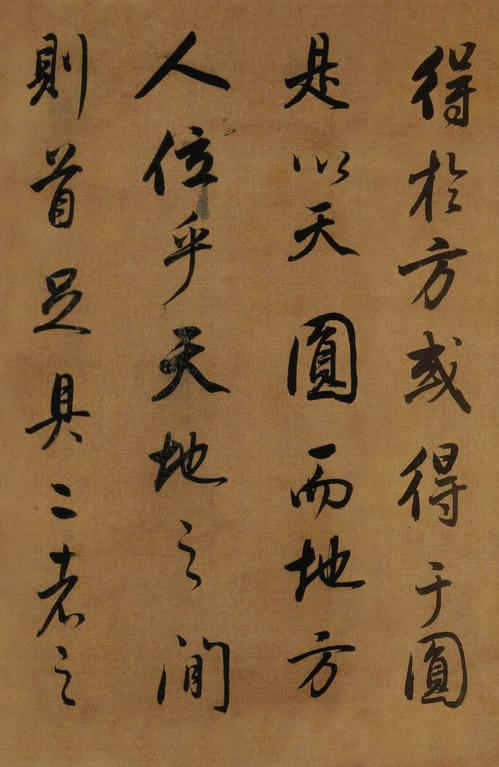 得於方或得于圓
是以天圓而地方
人位乎天地之間
則首足具二者之